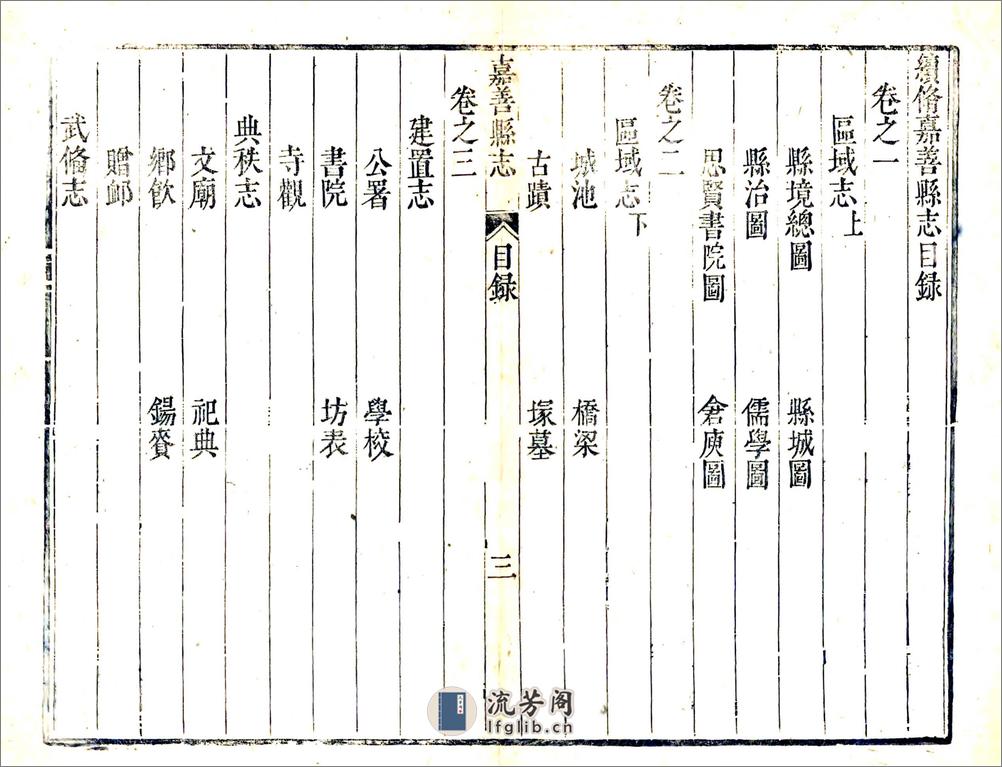 續脩嘉善縣志目録
卷之一
區域志上
縣境總圖 縣城圖
縣治圖 儒學圖
思賢書院圖 倉庾圖
卷之二
區域志下
城池 橋梁
古蹟 塚墓
嘉善縣志 目録 三
卷之三
建置志
公署 學校
書院 坊表
寺觀
典秩志
文廟 祀典
鄉飲 錫賚
贈卹
武脩志
流芳阁
lfglib.cn